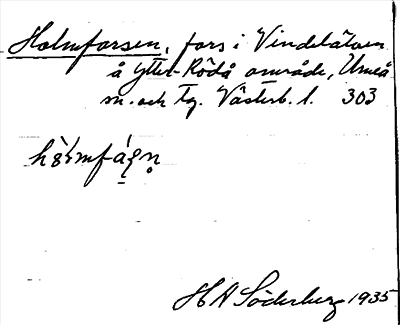 Holmforsen, fors i Vindelälven
å Ytter-Rödå område, Umeå
sn. och tg. Västerb. l. 303
H A Söderberg 1935